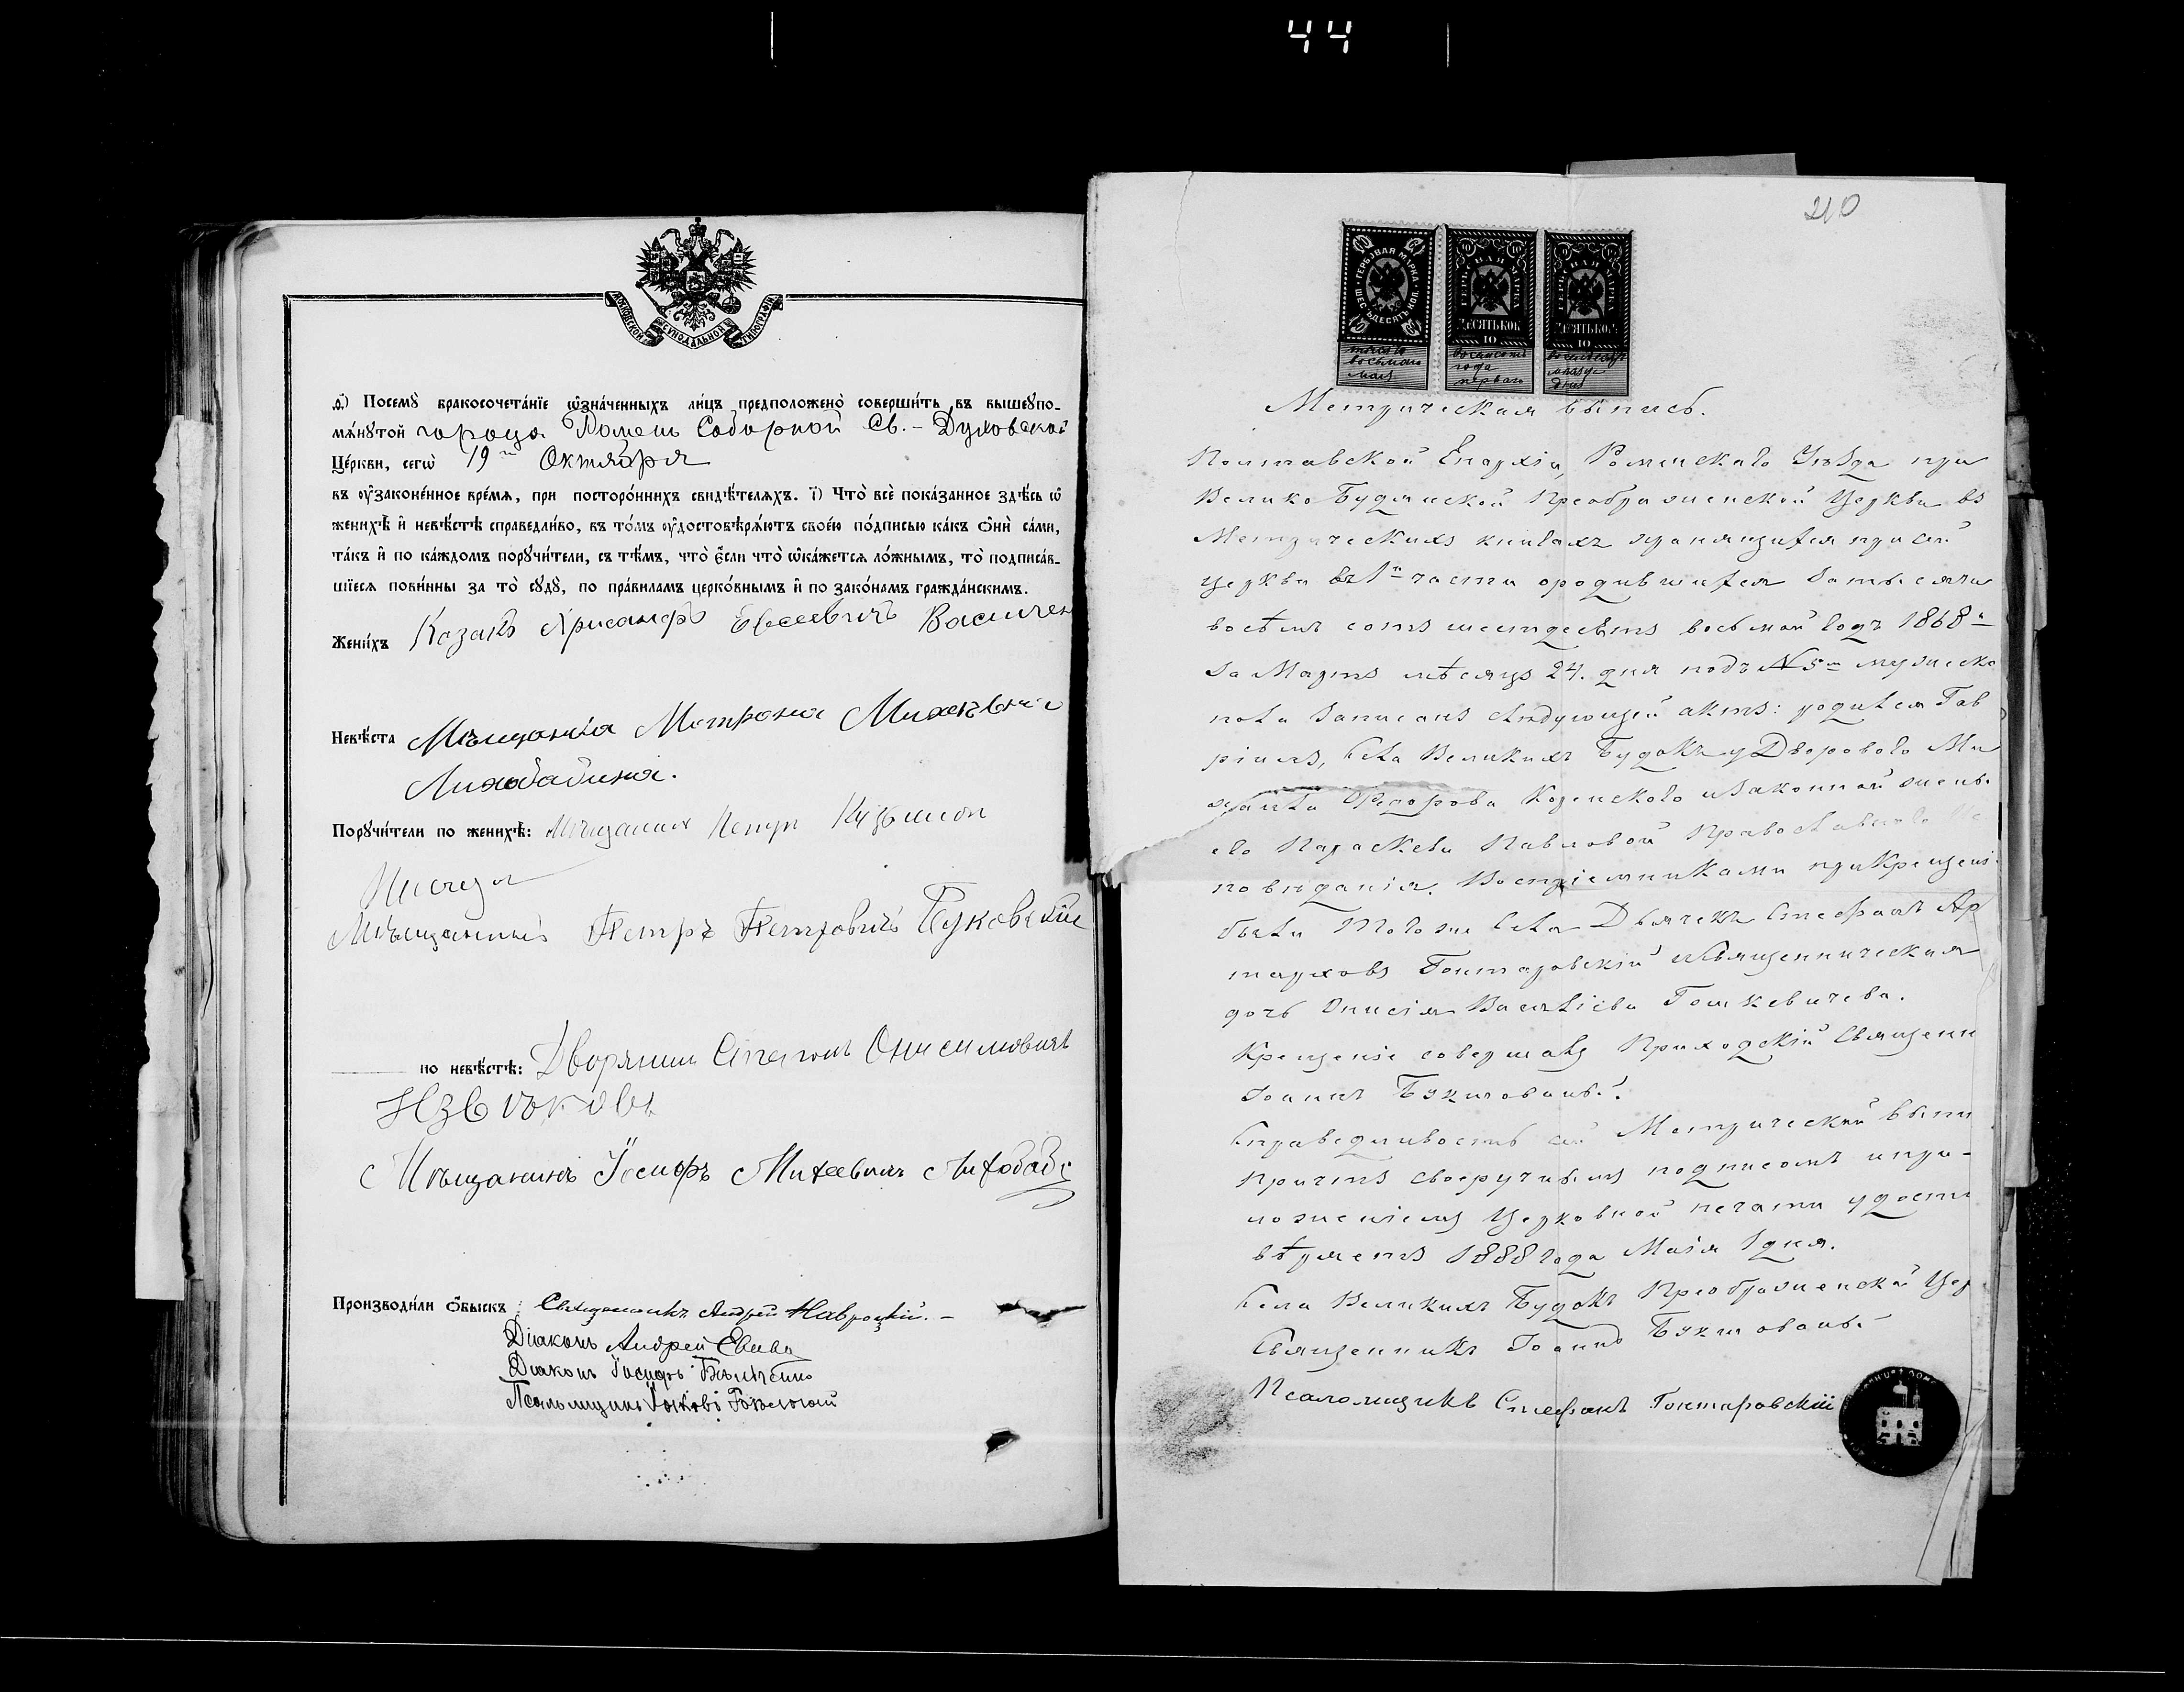 44
МОСКОВСКОЙ СУНОДАЛЬНОЙ ТИПОГРАФІИ
Посемꙋ̀ бракосочета́нїе ѡ҆зна́ченныхъ ли́цъ предположено̀ соверши́ть въ вышеꙋпо-
мѧ́нꙋтой города Ромен Соборной Св.-Духовской
Це́ркви, сегѡ̀ 19го Октября
въ ᲂу҆зако́ненное вре́мѧ, при посторо́ннихъ свидѣ́телѧхъ. і҃) Что̀ всѐ пока́занное здѣ́сь ѡ҆
женихѣ̀ и҆ невѣ́стѣ справедли́во, въ то́мъ ᲂу҆достовѣрѧ́ютъ свое́ю по́дписью ка́къ ѻ҆нѝ са́ми,
та́къ и҆ по ка́ждомъ порꙋчи́тели, съ тѣ́мъ, что̀ є҆́сли что̀ ѡ҆ка́жетсѧ ло́жнымъ, то̀ подписа́в-
шїесѧ пови́нны за то̀ сꙋдꙋ̀, по пра́виламъ церко́внымъ и҆ по зако́намъ гражда́нскимъ.
Жени́хъ Козакъ Хрисанфъ Евсеевичъ Василен
Невѣ́ста Мѣщанка Матрона Михеевна
Лихобабина.
Порꙋчи́тели по женихѣ̀: Мѣщанин Петр Кузьмич
Мѣщанинъ Петръ Петровичъ Буковскій
по невѣ́стѣ: Дворянин Степанъ Онисимовичъ
Мѣщанинъ Іосифъ Михеевичъ Лихобаба
Производи́ли ѻ҆́быскъ: Священникъ Андрей Навроцкій.-
Діаконъ Андрей
Діаконъ Іосифъ
Псаломщикъ Іаковъ
210
ГЕРБОВАЯ МАРКА ШЕСТЬДЕСЯТЬ КОП.
ГЕРБОВАЯ МАРКА ДЕСЯТЬ КОП. 10
ГЕРБОВАЯ МАРКА ДЕСЯТЬ КОП. 10
тысяча восьмого мая
восемсотъ года перваго
восемьдесят дня
Метрическая выпись.
Полтавской Епархіи, Роменскаго Уѣзда при
Велико Будянской Преображенской Церкви въ
Метрическихъ книгахъ хранящихся при сей
церкви въ 1й части о родившихся за тысяча
восѣмъ сотъ шестдесятъ восьмой годъ 1868й
за Мартъ мѣсяцъ 24. дня подъ № 5м мужеска
пола записанъ слѣдующій актъ: родился Гав
ріилъ, села Великихъ Будокъ у Дворового Ми
хаила Федорова Козенского и законной жены
его Параскевы Павловой Православнаго
повѣданія. Воспріемниками при Крещеніи
были того же села Дьячекъ Стефанъ Ар
тарховъ Гонтаровскій и Священническая
дочь Анисія Василіева Гошкевичева.
Крещеніе совершалъ Приходскій Священн
Іоаннъ
Справедливость сей Метрической выпи
Причтъ своеручнымъ подписомъ и при-
ложеніемъ Церковной печати удосто
вѣряетъ 1888 года Маія 1 дня.
Села Великихъ Будокъ Преображенской Цер
Священникъ Іоаннъ
Псаломщикъ Стефанъ Гонтаровскій